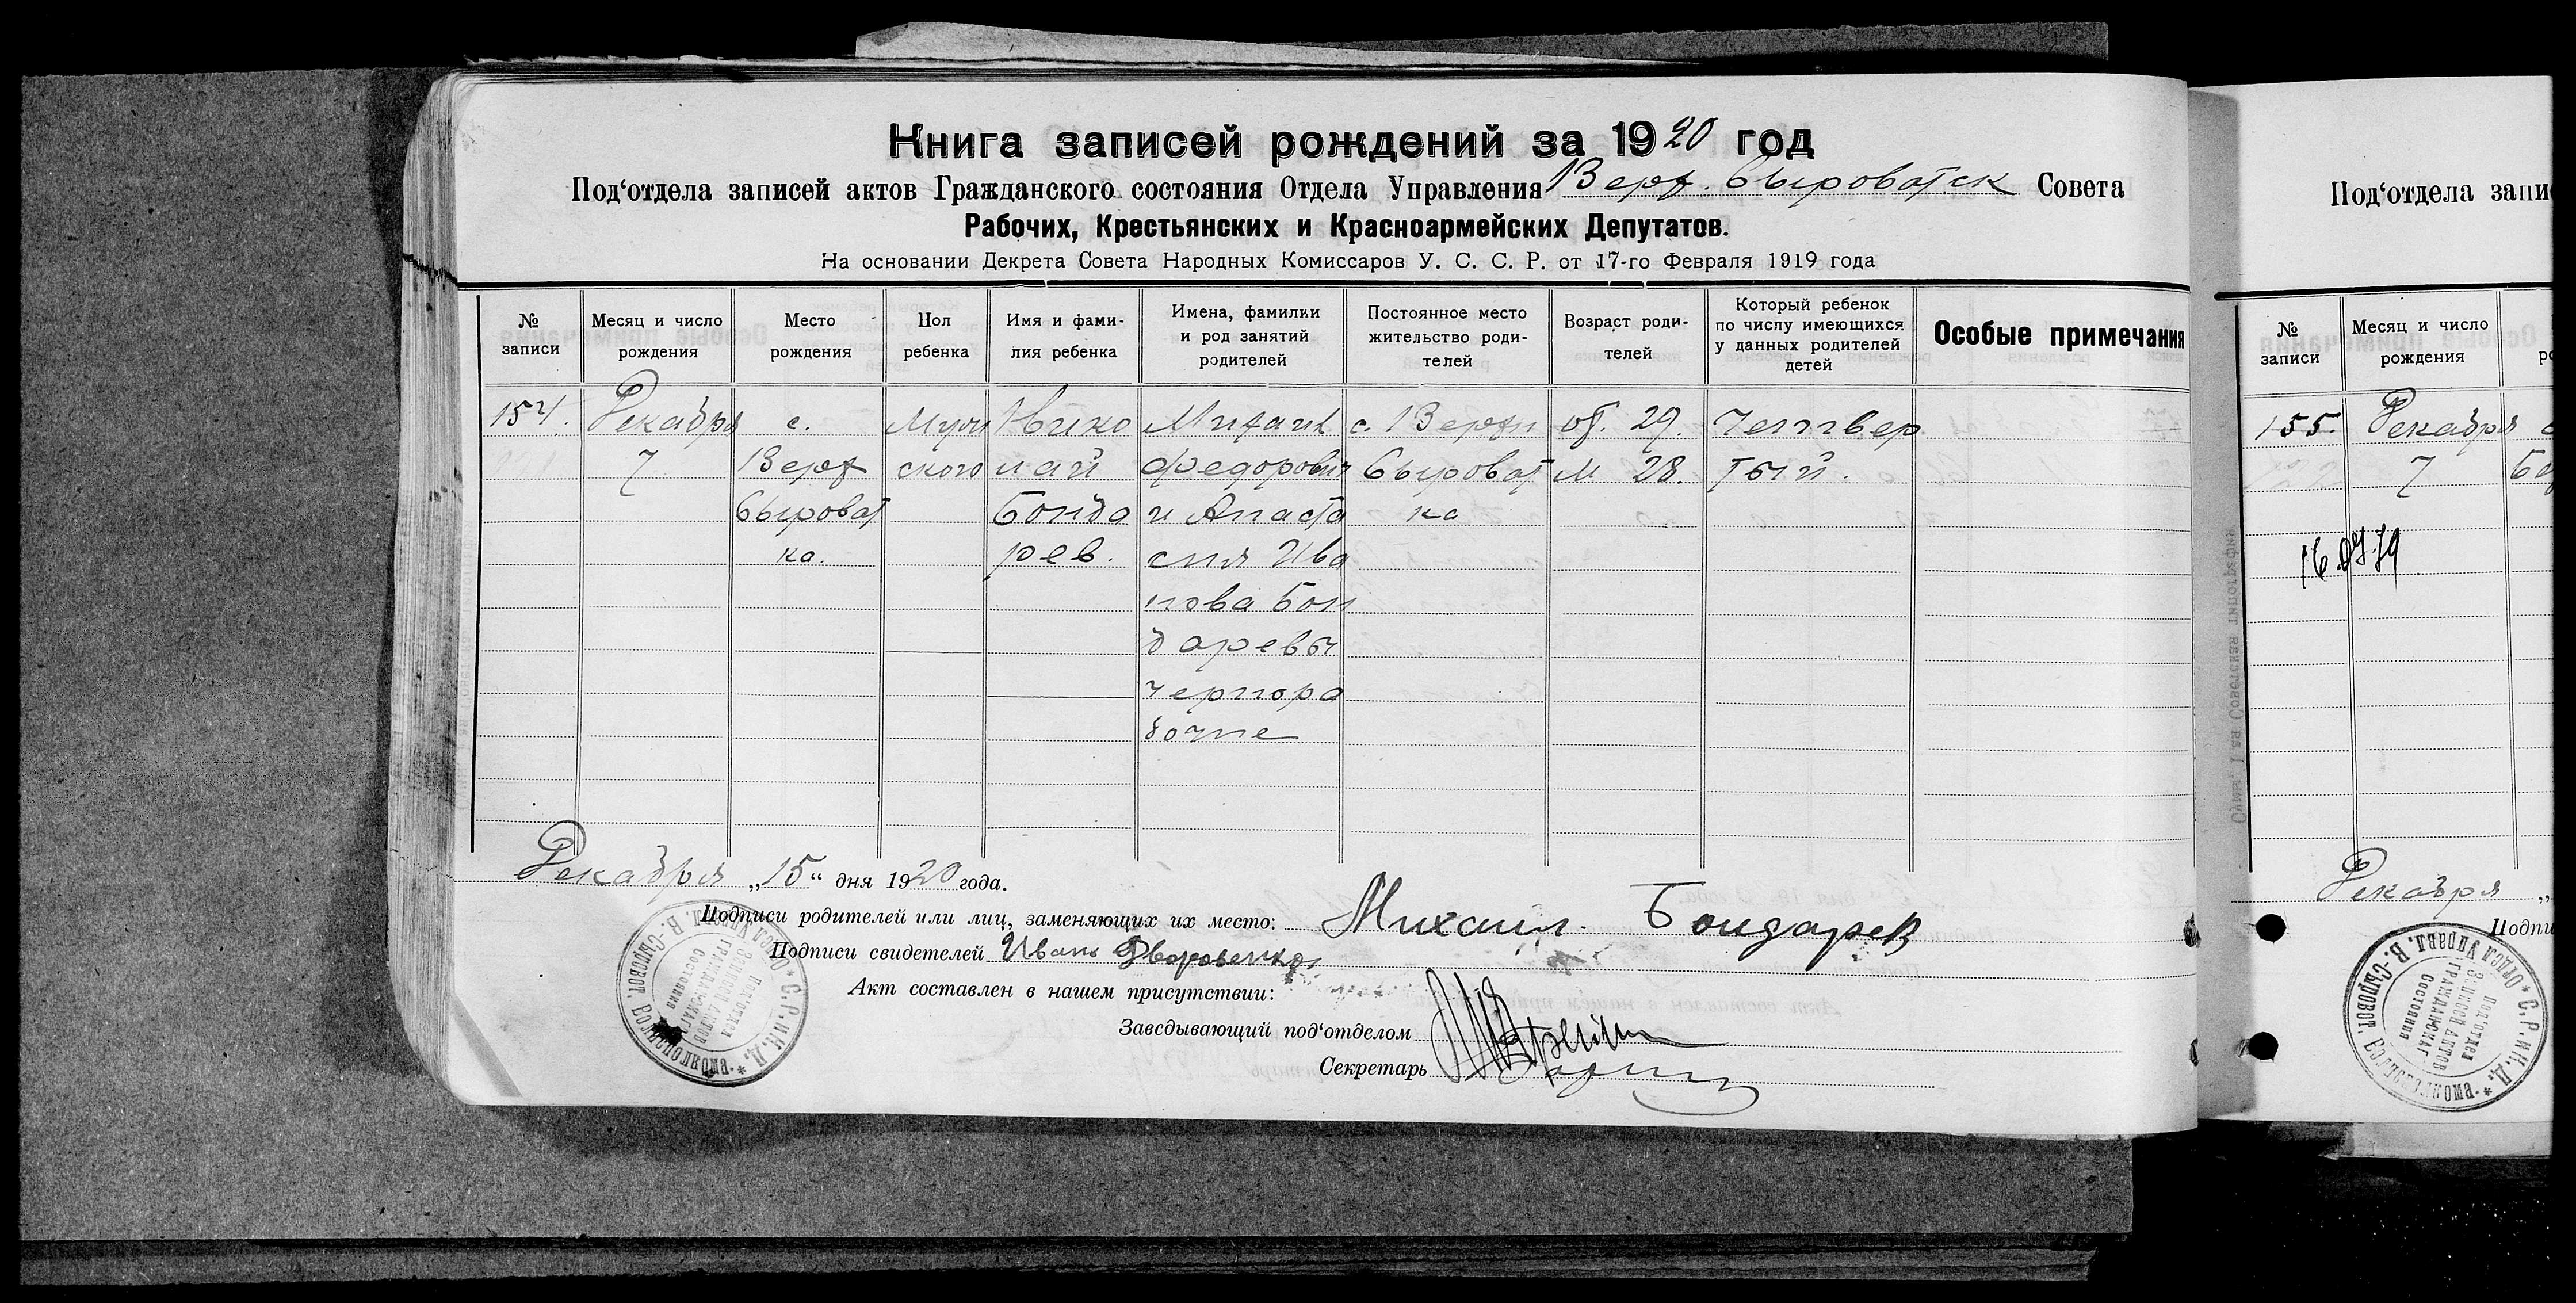 Книга записей рождений за 1920 год
Под‘отдела записей актов Гражданского состояния Отдела Управления Верх. Сыроватск Совета
Рабочих, Крестьянских и Красноармейских Депутатов.
На основании Декрета Совета Народных Комиссаров У. С. С. Р. от 17-го Февраля 1919 года
№ записи
Месяц и число рождения
Место рождения
Пол ребенка
Имя и фами-
лия ребенка
Имена, фамилии
и род занятий
родителей
Постоянное место
жительство роди-
телей
Возраст роди-
телей
Который ребенок
по числу имеющихся
у данных родителей
детей
Особые примечания
154.
Декабря
7
с.
Верх
Сыроват
ка.
Муж
ского
Нико
лай
Бонда
рев.
Михаил
Федорович
и Анаста
сия Ива
нова Бон
даревы
чернора
бочие
с. Верхн
Сыроват
ка
об. 29.
м 28.
Четвер
тый.
Декабря „15“ дня 1920 года.
Подписи родителей или лиц, заменяющих их место: Михаил. Бондарев
Подписи свидетелей Иванъ
Акт составлен в нашем присутствии:
Заведывающий под‘отделом
Секретарь
* С.Р.и К.Д. * Отдел Управл. В.-Сыроват.
Подотдел
Записи Актов
Граждансказ
Состояния
Под‘отдела запи
№ записи
Месяц и число
рождения
155.
Декабря
7
16.07.79
Сумы. 1-ая Советская типография
Декабря „
Подпи
* С.Р.и К.Д. * Отдел Управл. В.-Сыроват.
Подотдел
Записи Актов
Граждансказ
Состояния